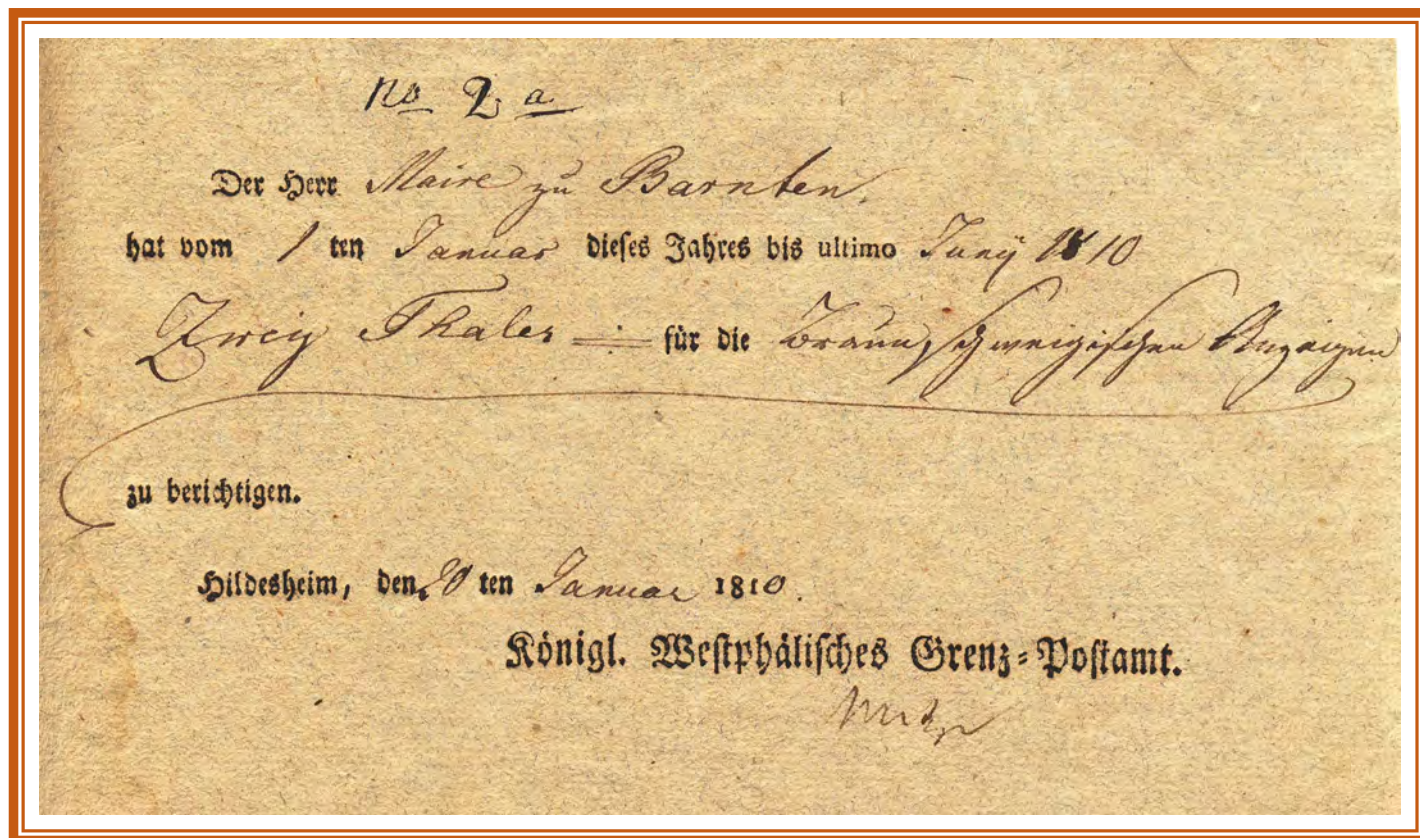 no 2 a
Der Herr Maire zu Barnten.
hat vom 1 ten Januar dieses Jahres bis ultimo Juny 1810
Zwey Thaler = für die Braunschweigischen Anzeigen
zu berichtigen.
Hildesheim, den 20 ten Januar 1810.
Königl. Westphälisches Grenz-Postamt.